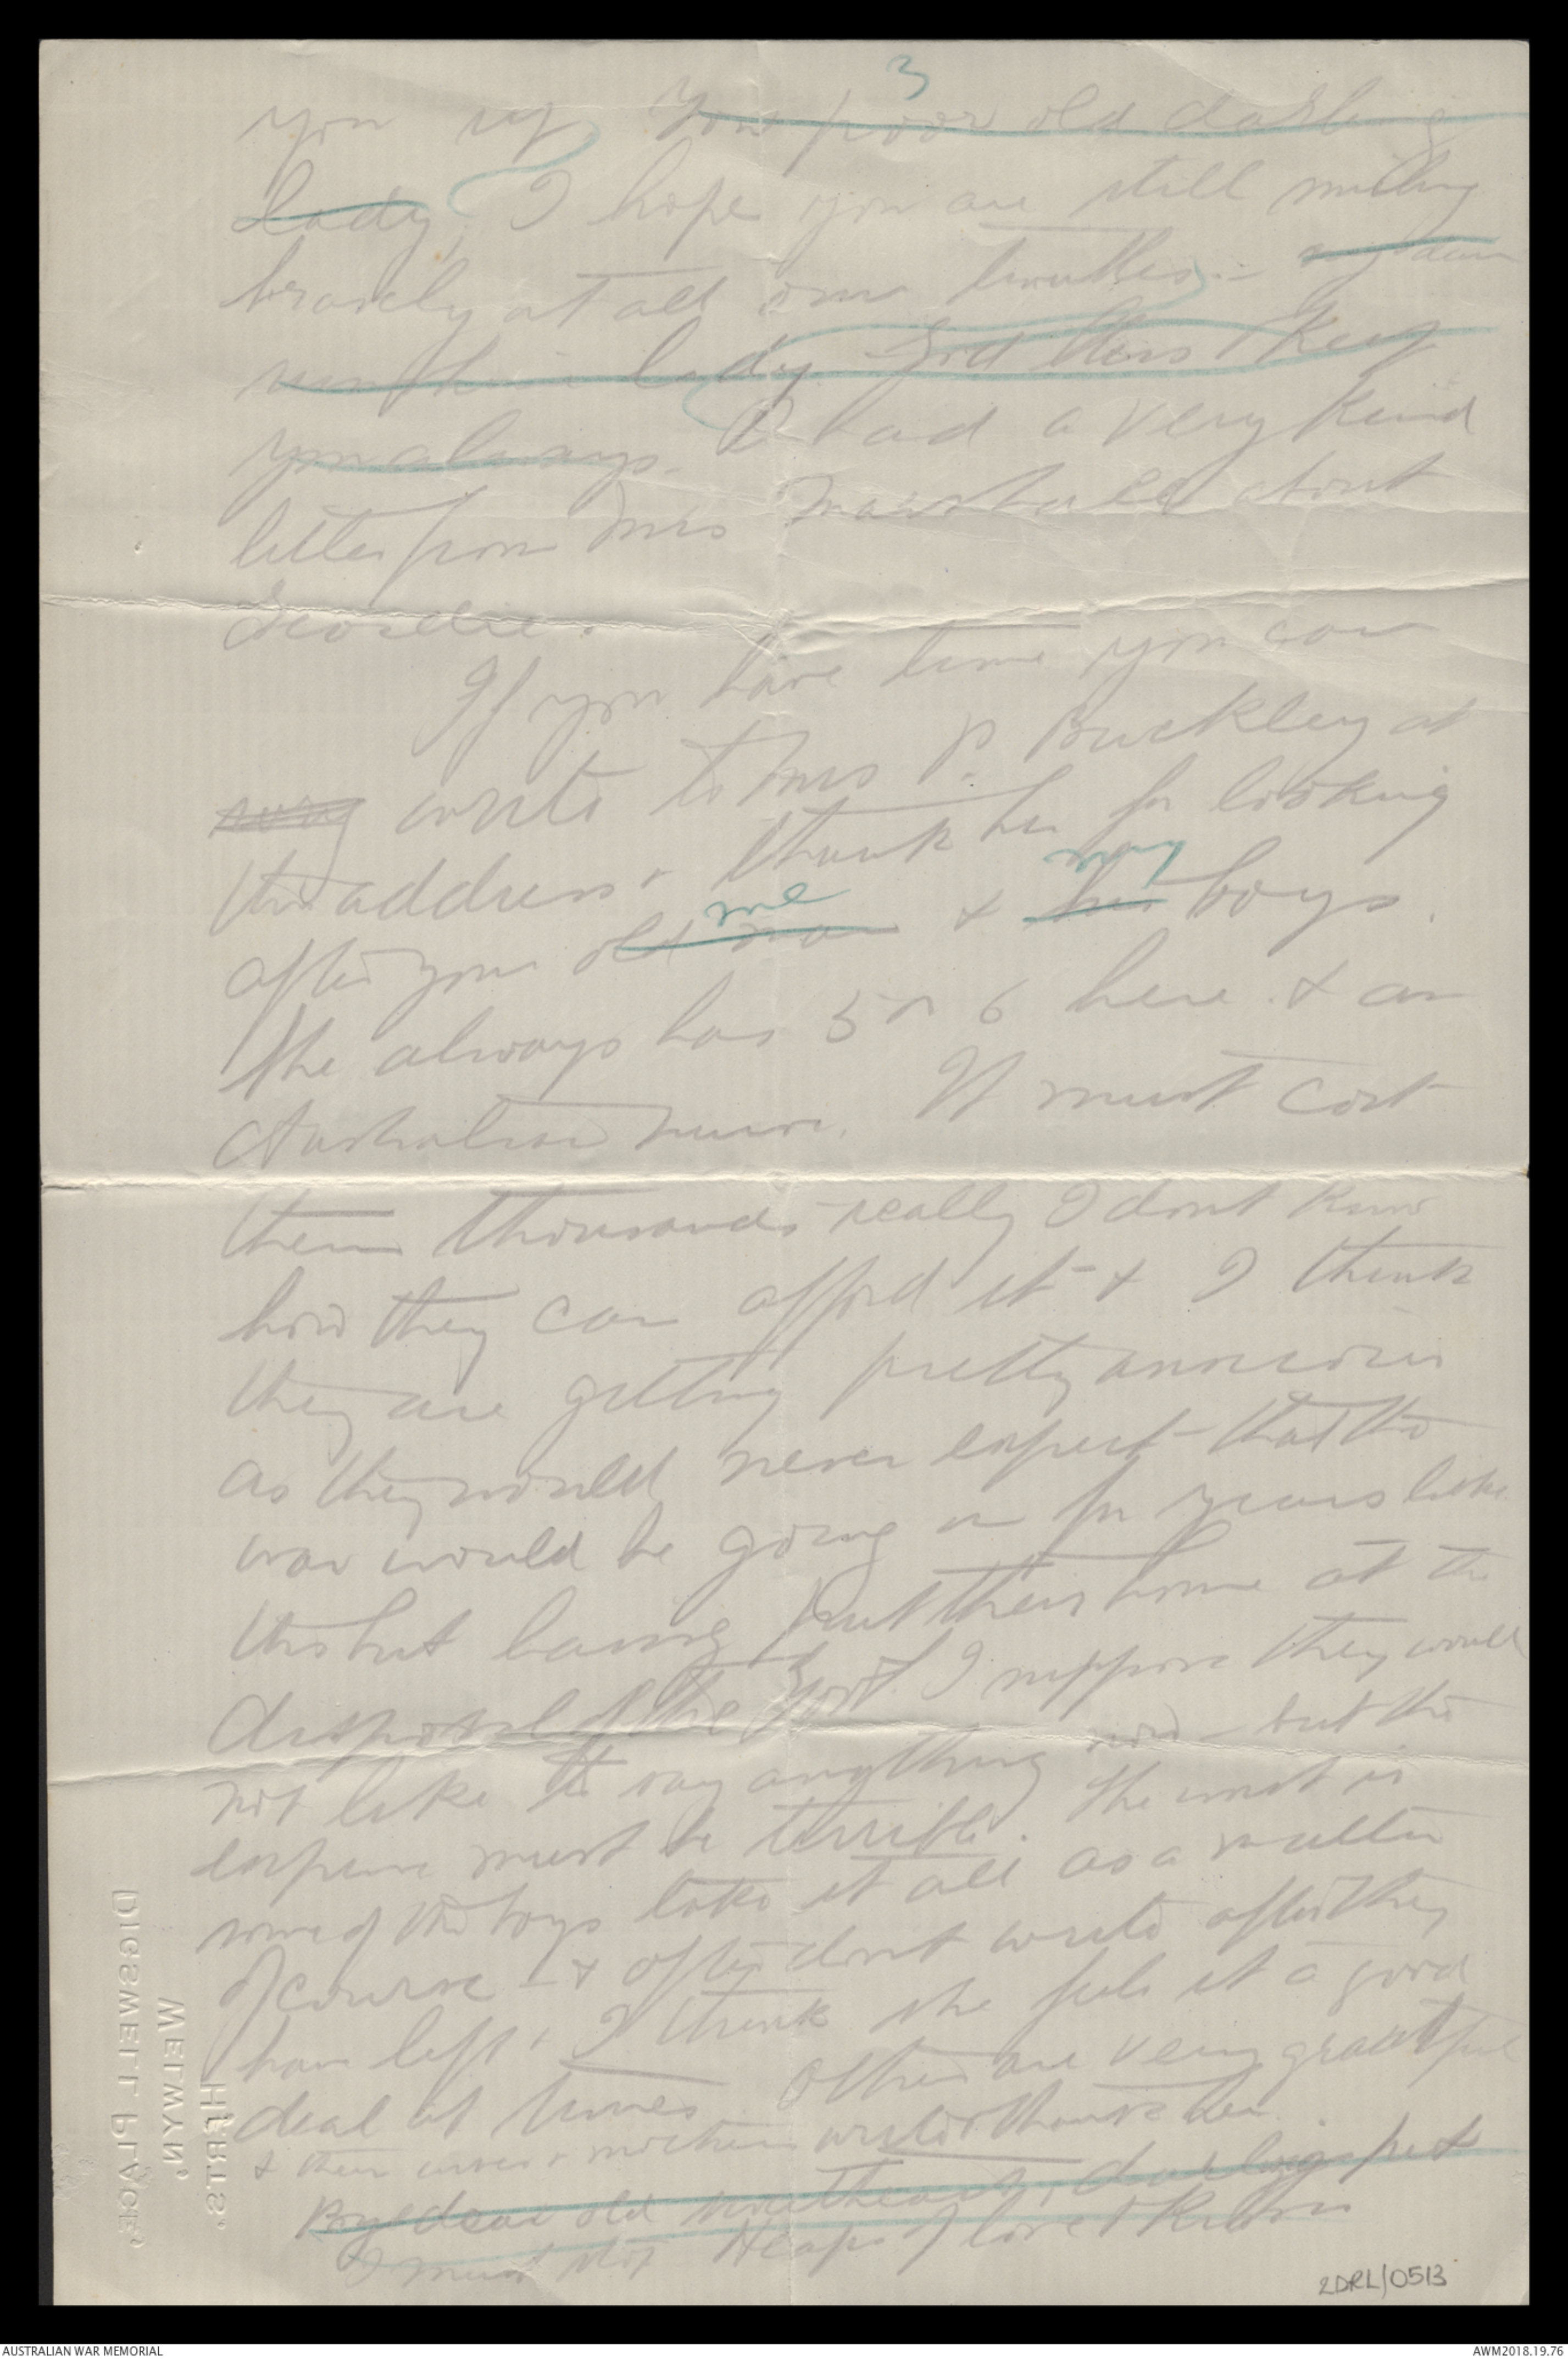 3
you up You poor old darling
lady, I hope you are still smiling
bravely at all our troubles. - my dear
sunshine lady. God bless & keep
you always. I had a very kind
letter from Mrs Marshall about
Geordie.
If you have time you can
write to Mrs P. Buckley at
this address & thank her for looking
after your old man me & her my boys.
She always has 5 or 6 here & an
Australian nurse. It must cost
them thousands really I dont know
how they can afford it & I think
they are getting pretty anxious
as they would never expect that the
war would be going on for years like
this but having put their home at the
disposal of the Govt. I suppose they would
not like to say anything now - but the
expense must be terrible. The worst is
some of the boys take it all as a matter
of course - & often dont write after they
have left & I think she feels it a good
deal at times. Others are very grateful
& their wives & mothers write & thank her.
Bye dear old sweetheart & darling pet
I must stop Heaps of love & kisses
DIGSWELL PLACE,
WELWYN,
HERTS.
2DRL/0513
AUSTRALIAN WAR MEMORIAL
AWM2018.19.76